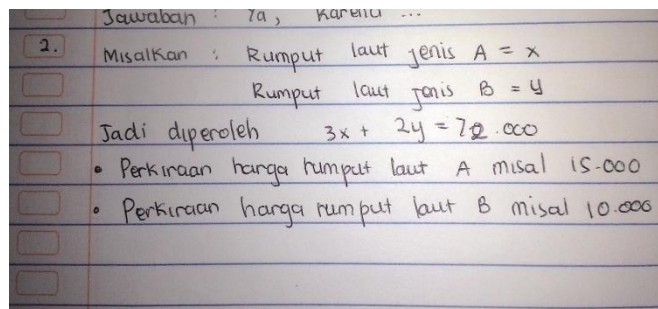 Jawaban : Ya, Karena ...
2. Misalkan : Rumput laut jenis A = x
Rumput laut jenis B = y
Jadi diperoleh 3x + 2y = 72.000
• Perkiraan harga rumput laut A misal 15.000
• Perkiraan harga rumput laut B misal 10.000